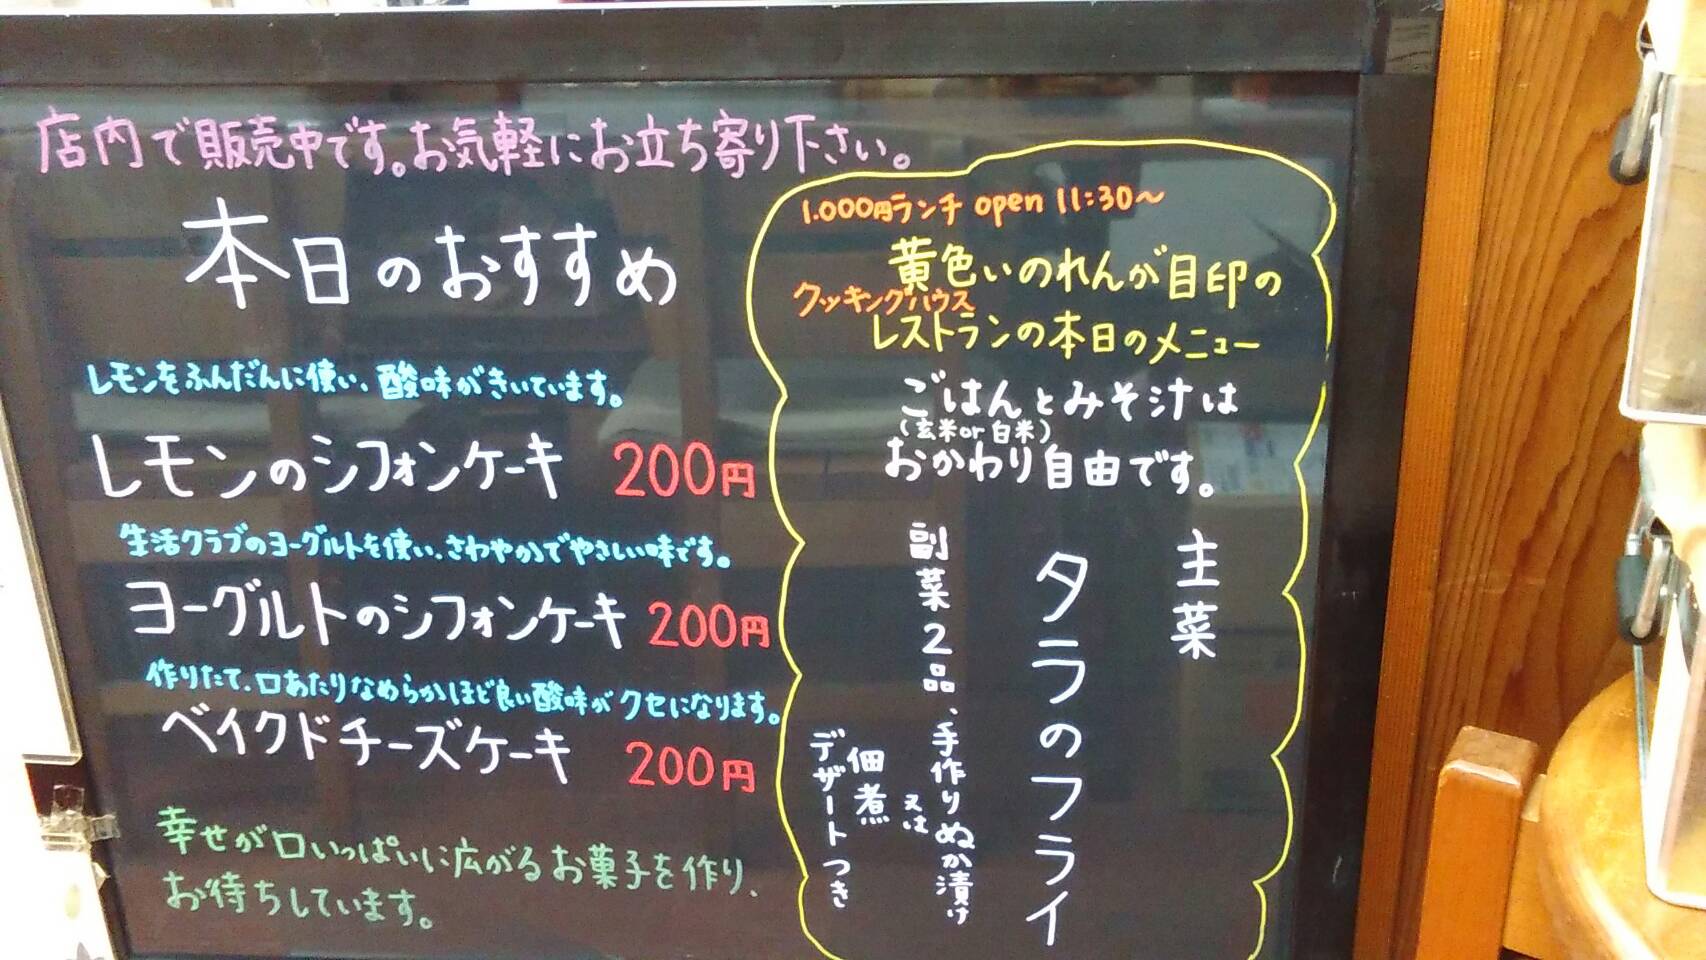 店内で販売中です。お気軽にお立ち寄り下さい。
本日のおすすめ
レモンをふんだんに使い、酸味がきいています。
レモンのシフォンケーキ 200円
生活クラブのヨーグルトを使い、さわやかでやさしい味です。
ヨーグルトのシフォンケーキ 200円
作りたて、口あたりなめらかほど良い酸味がクセになります。
ベイクドチーズケーキ 200円
幸せが口いっぱいに広がるお菓子を作り、
お待ちしています。
1.000円ランチ open 11:30〜
黄色いのれんが目印の
クッキングハウス
レストランの本日のメニュー
ごはんとみそ汁は
(玄米or白米)
おかわり自由です。
主菜
タラのフライ
副菜2品、手作りぬか漬け
又は
佃煮
デザートつき